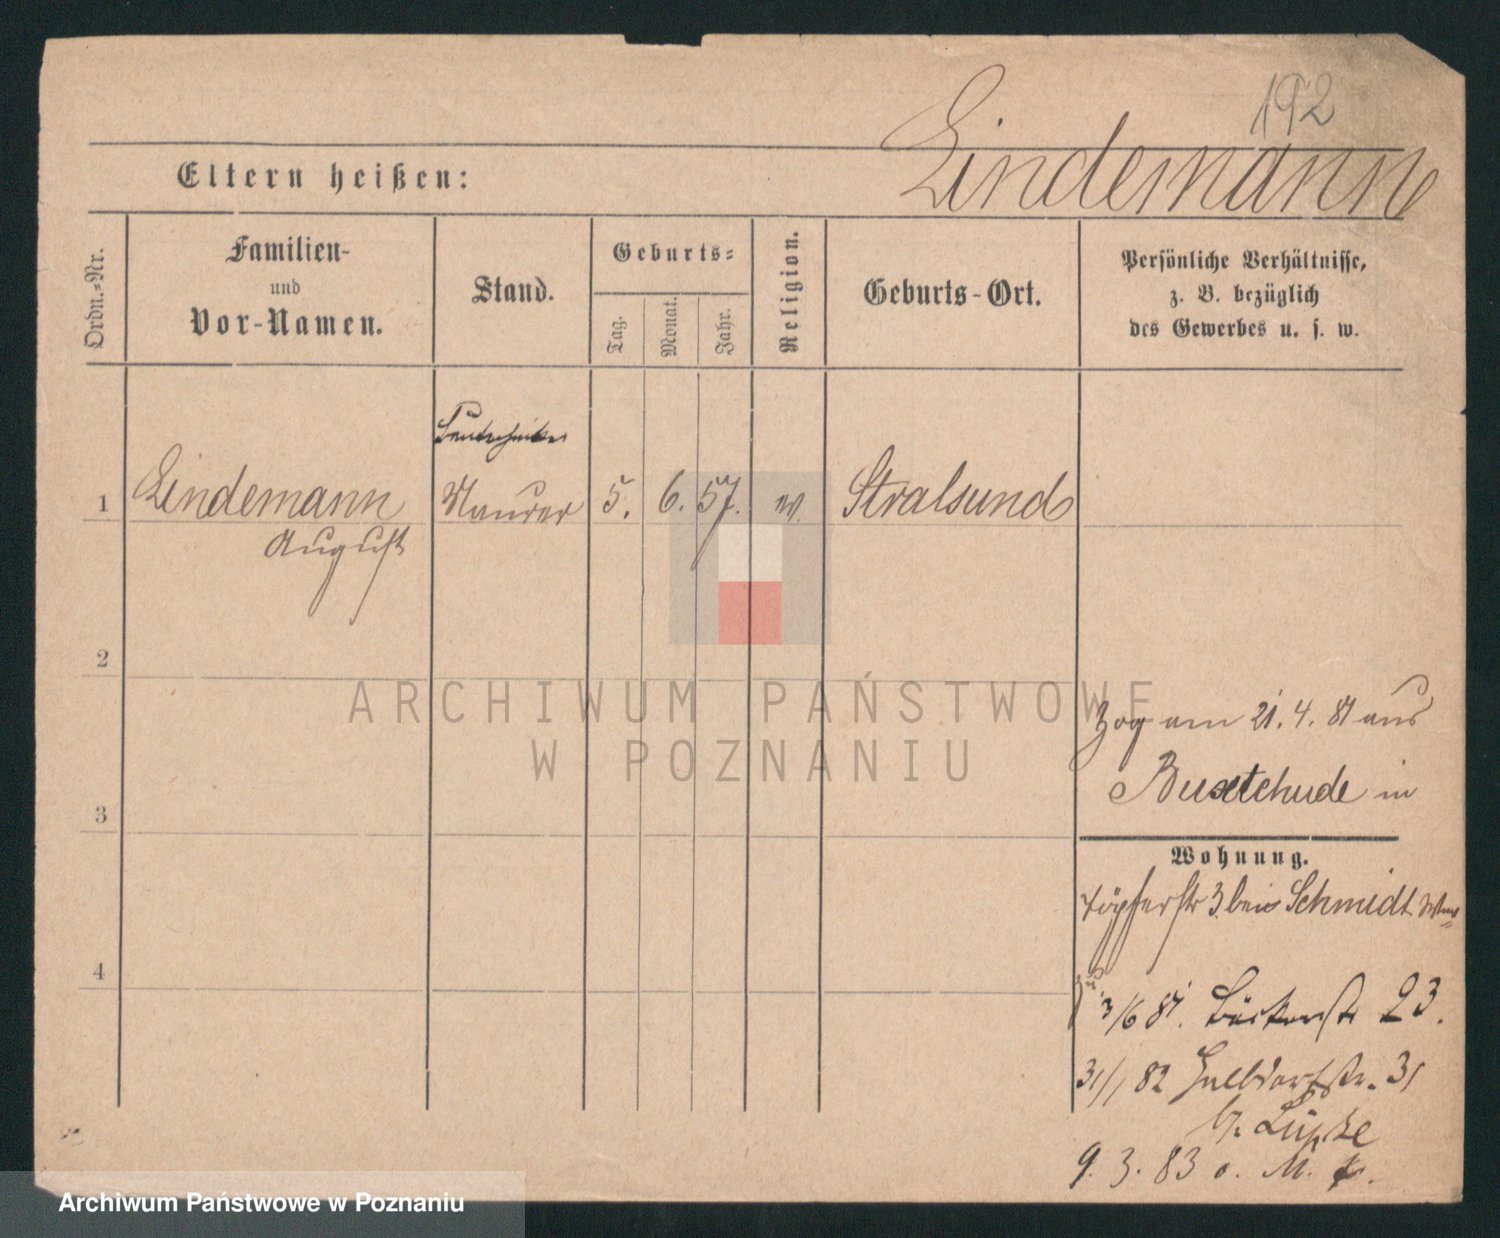 192
Lindemann
Eltern heißen:
Ordn.-Nr.
Familien-
und
Vor-Namen.
Stand.
Geburts-
Tag.
Monat.
Jahr.
Religion.
Geburts-Ort.
Persönliche Verhältnisse,
z. B. bezüglich
des Gewerbes u. s. w.
Bautechniker
1 Lindemann Maurer 5. 6. 57. ev. Stralsund
August
2
ARCHIWUM PAŃSTWOWE
W POZNANIU
Zog am 21. 4. 81 aus
Buxtehude in
3
Wohnung.
Töpferstr 3 bei Schmidt
4
3/6 81. Bäckerstr 23.
31/1 82 Halbdorfstr. 31
b. Lüpke
9. 3. 83 o. M.
Archiwum Państwowe w Poznaniu